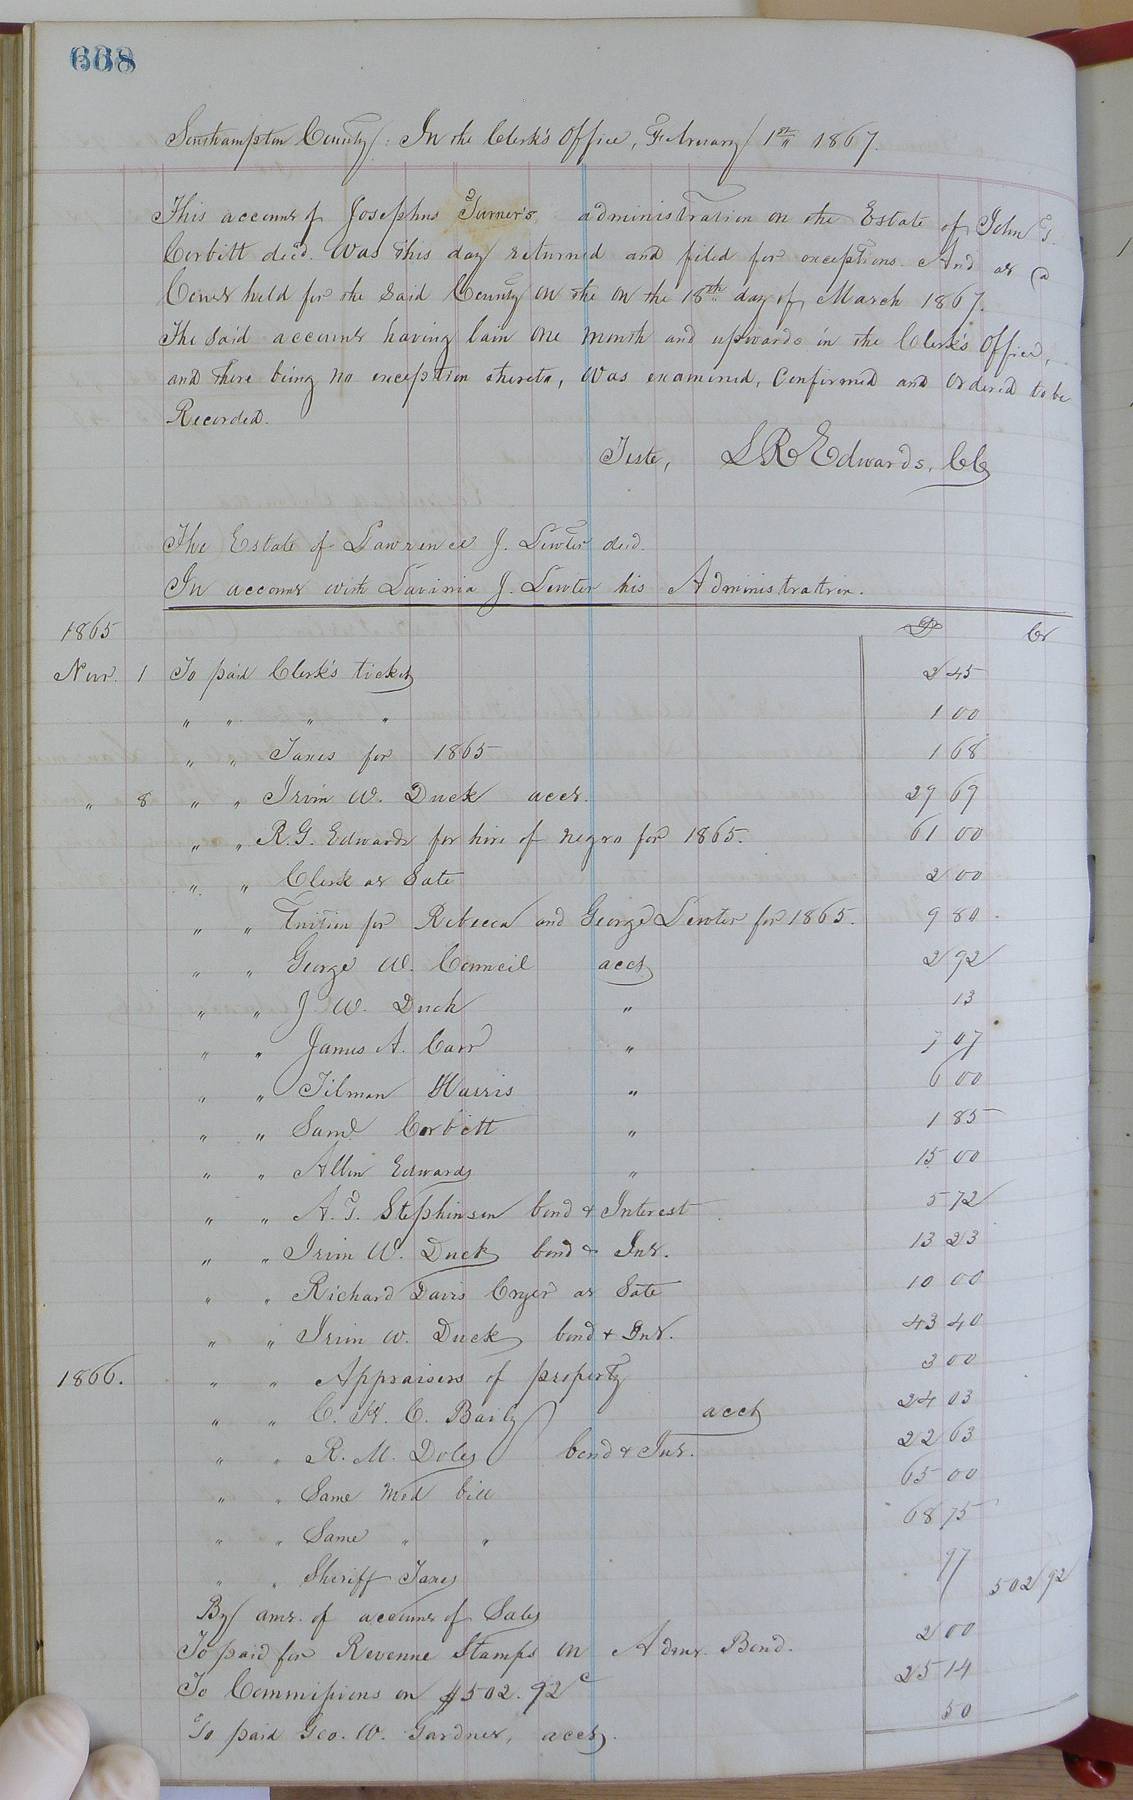 668
Southampton County: In the Clerk's Office, February 1st 1867.
This account of Josephus Turner's administration on the Estate of John T.
Corbitt decd. Was this day returned and filed for exceptions. And at a
Court held for the Said County on the on the 18th day of March 1867.
The Said account having lain one month and upwards in the Clerk's Office,
and there being no exception thereto, was examined, Confirmed and Ordered to be
Recorded.
Teste, L R Edwards, CC
The Estate of Lawrence J. Lewter decd.
In account with Lavinia J. Lewter his Administratrix.
1865 D Cr
Novr. 1 To paid Clerk's ticket 2 45
" " " " 1 00
" " Taxes for 1865 1 68
" 8 " " Irvin W. Duck acct. 29 69
" " R. G. Edwards for hire of negro for 1865. 61 00
" " Clerk at Sale 2 00
" " Tuition for Rebecca and George Lewter for 1865. 9 80
" " George W. Council acct 2 92
" " J W. Duck " 13
" " James A. Carr " 7 07
" " Tilman Harris " 6 00
" " Saml Corbett " 1 85
" " Allen Edwards " 15 00
" " A. T. Stephinson bond & Interest 5 72
" " Irvin W. Duck bond & Int. 13 23
" " Richard Davis Cryer at Sale 10 00
" " Irvin W. Duck bond & Int. 43 40
1866. " " Appraisers of property 3 00
" " C. H. C. Baily acct 24 03
" " R. M. Doles bond & Int. 22 63
" " Same Med bill 65 00
" " Same " " 68 75
" " Sheriff Taxes 97
By amt. of account of Sales 502 92
To paid for Revenue Stamps on Admr. Bond. 2 00
To Commissions on $502.92c 25 14
To paid Geo. W. Gardner, acct. 50